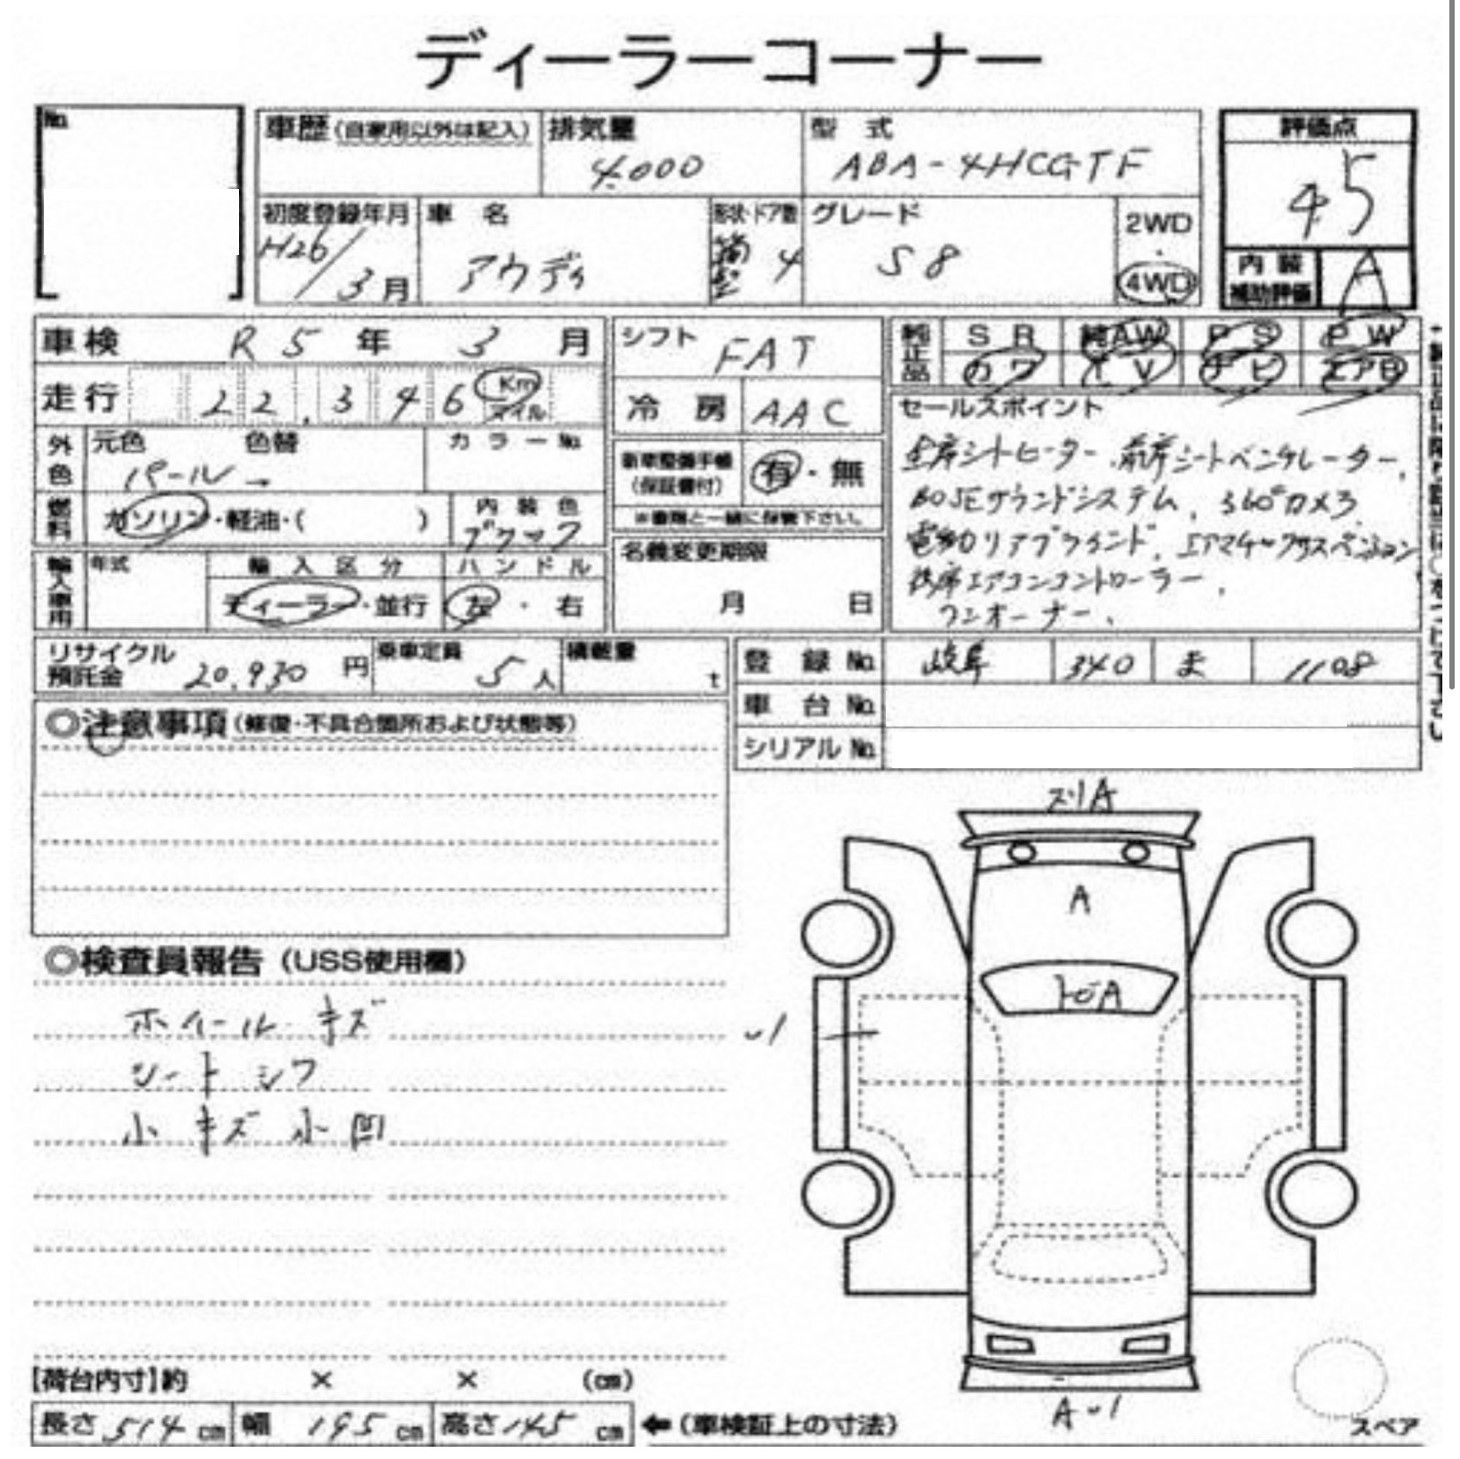 ディーラーコーナー
No.
車歴(自家用以外は記入)
排気量
4.000
型式
ABA-4HCGTF
評価点
4.5
初度登録年月
H26/3月
車名
アウディ
形状・ドア数
箱型 4
グレード
S8
2WD
・
4WD
内装
補助評価
A
車検 R5年3月
走行 22,346 Km
マイル
外色
元色 色替
パール →
カラーNo.
燃料
ガソリン・軽油・( )
内装色
ブラック
輸入車用
年式
輸入区分
ディーラー・並行
ハンドル
左・右
シフト
FAT
冷房
AAC
新車整備手帳
(保証書付)
有・無
※書類と一緒に保管下さい。
名義変更期限
月 日
純正品
SR 純AW PS PW
カワ TV ナビ エアB
セールスポイント
全席シートヒーター、前席シートベンチレーター、
BOSEサウンドシステム、360°カメラ
電動リアブラインド、エアマチックサスペンション
後席エアコンコントローラー、
ワンオーナー、
リサイクル
預託金
20,930円
乗車定員
5人
積載量
t
登録No. 岐阜 340 ま 1108
車台No.
シリアルNo.
◎注意事項(修復・不具合箇所および状態等)
◎検査員報告(USS使用欄)
ホイールキズ
シートシワ
小キズ小凹
スリA
A
トビA
U1
AU1
スペア
[荷台内寸]約 × × (cm)
長さ514cm 幅195cm 高さ145cm ←(車検証上の寸法)